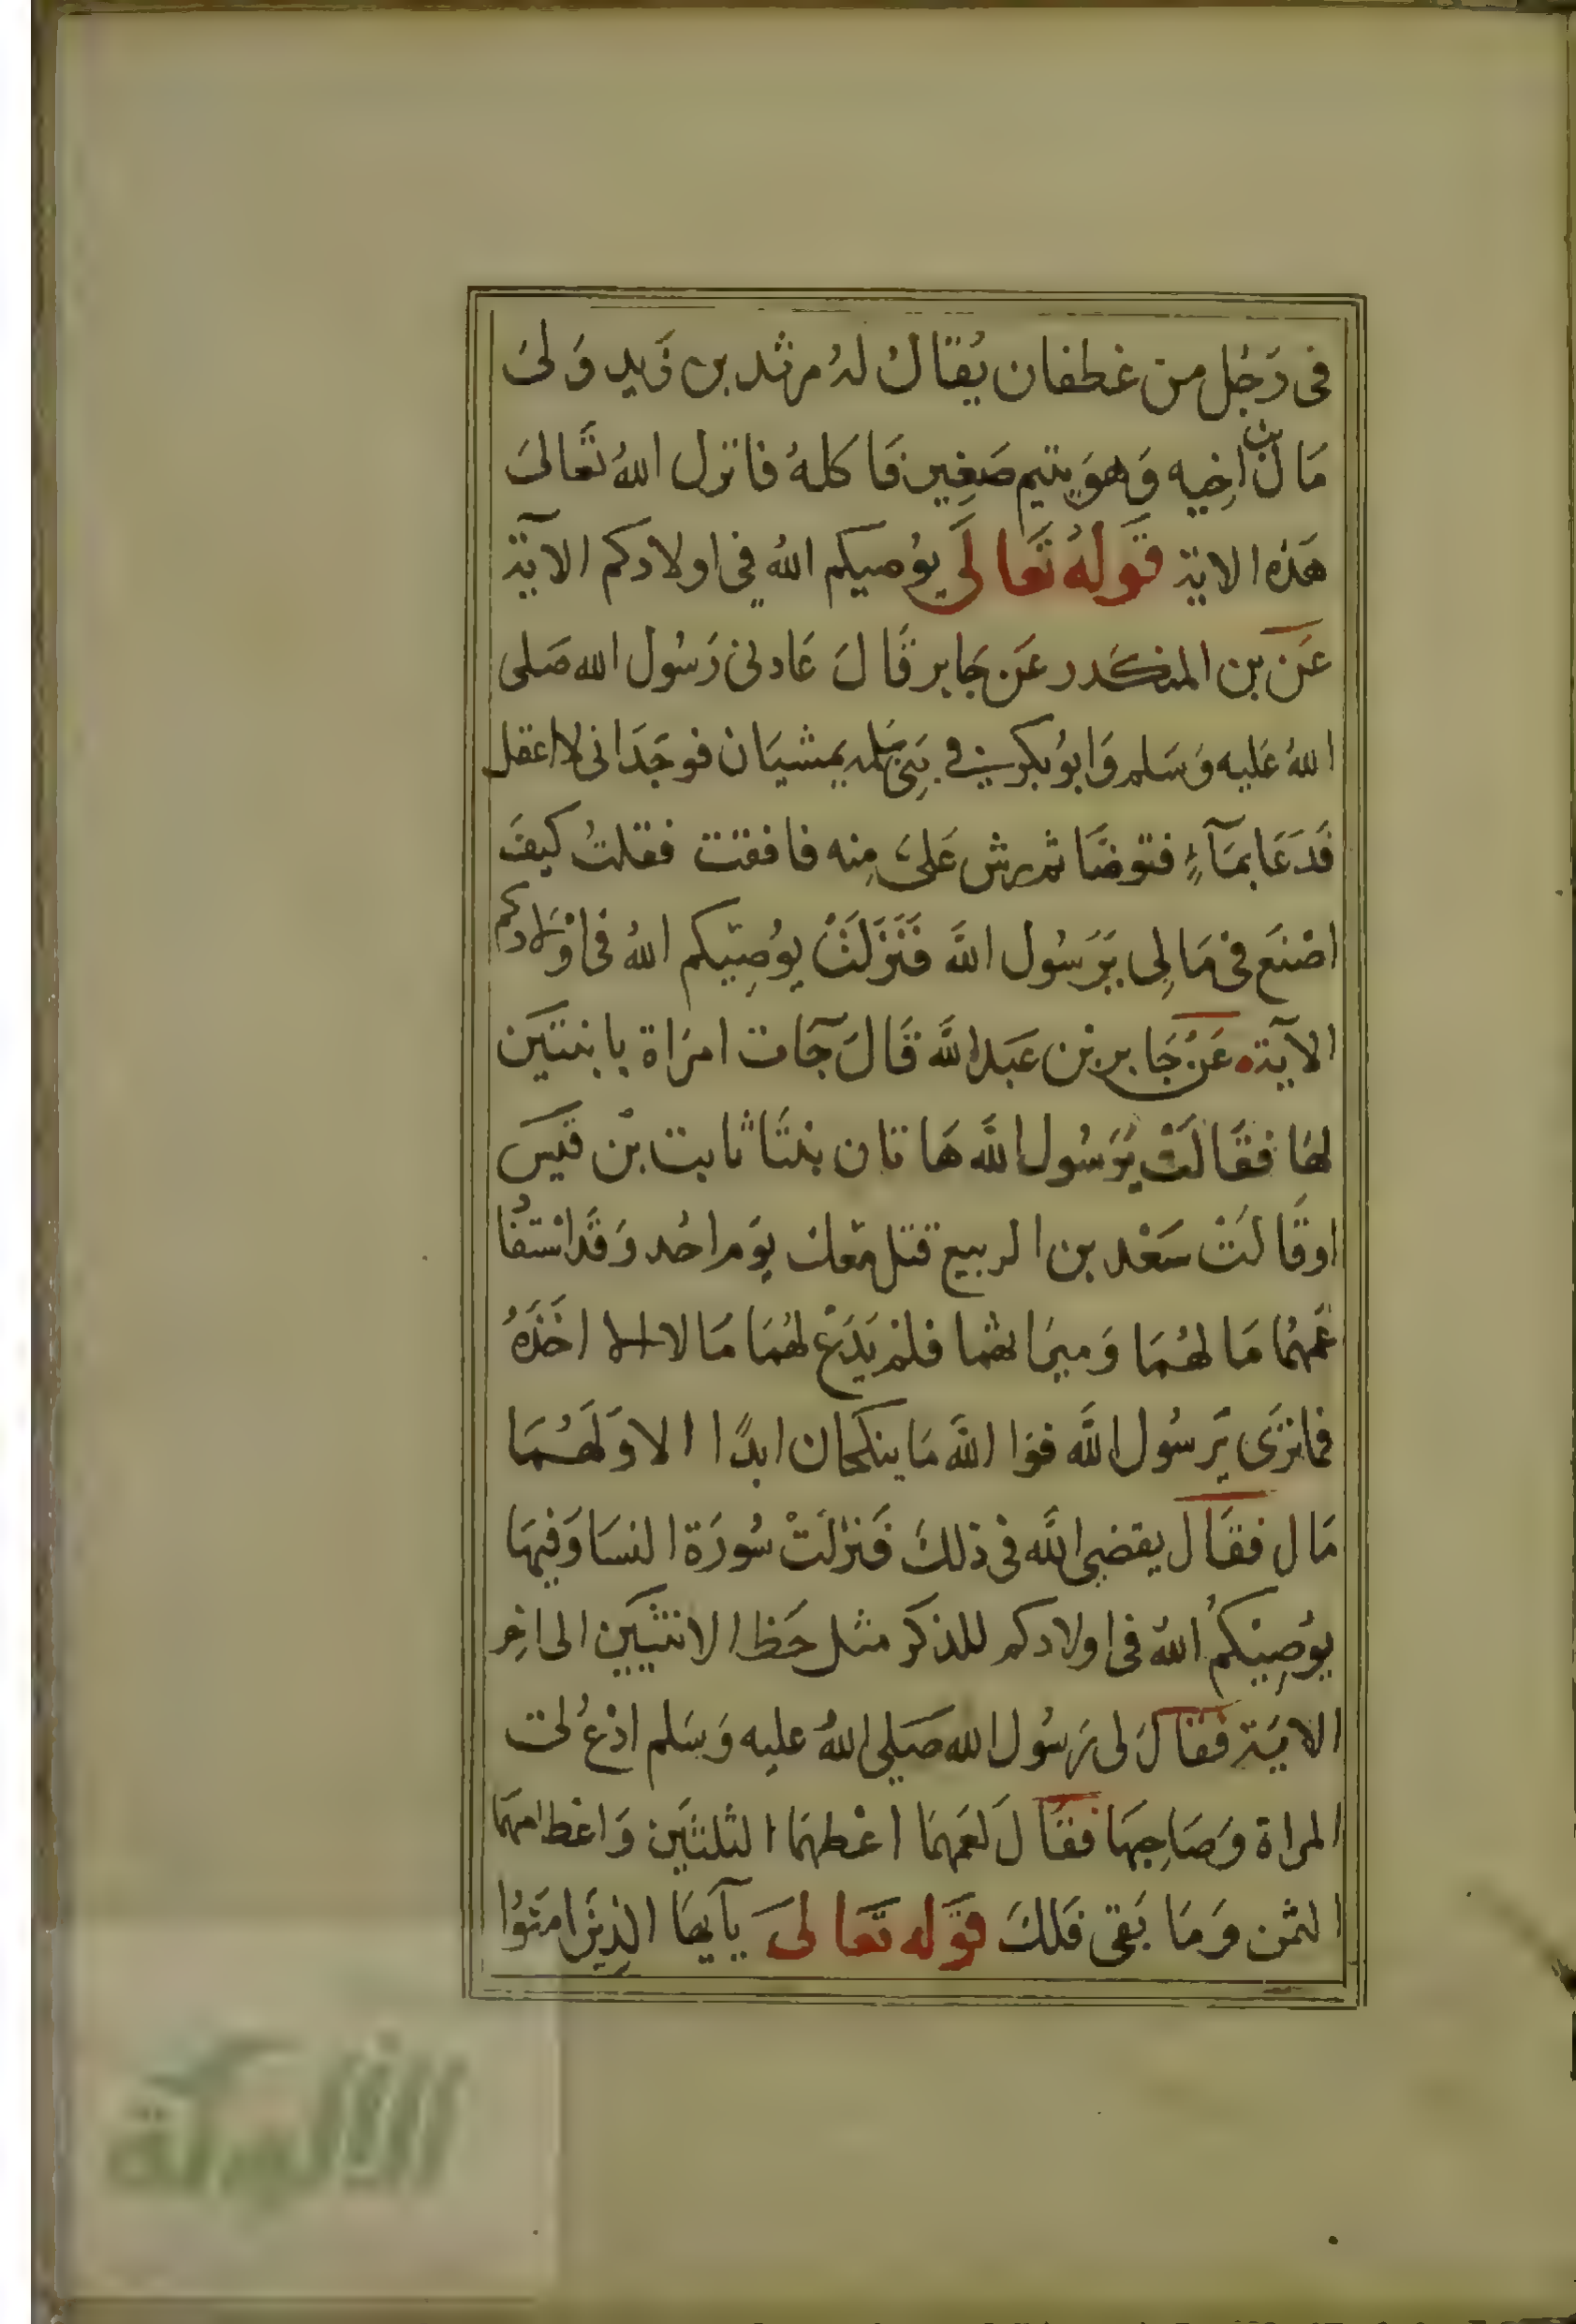 فى رَجُل من غطفان يُقال لهُ مرثد بن زَيد وَلىَ
مَال بن اخِيه وَهوَ يتيم صَغِير فَاكلهُ فانزل اللهُ تعَالىَ
هَذه الاية قَولهُ تَعَالَى يوُصيكم اللهُ في اولادكم الآية
عَن بن المنكَدر عَن جَابر قَالَ عَادنى رَسُول الله صَلى
اللهُ عَليه وَسَلم وَابوُ بكر في بَنِى سَلمه يمشيَان فوجَدَانى لا اعقل
فَدَعَا بمَآءٍ فتوضَّا ثم رش عَلىَّ مِنه فافقت فقلتُ كيفَ
اصْنَع فى مَالِى يَرَسُول اللَّه فَنَزَلَتْ يوُصِيكم اللهُ فى اوْلادكم
الآيةه عَنْ جَابر بن عَبد اللَّه قَالَ جَآت امرَاة بابنتَين
لهَا فقَالَتْ يَرَسُول اللَّه هَاتان بنتَا ثابت بْن قَيس
اوقَالَتْ سَعْد بن الربيع قتل مَعك يوَم احُد وَقَد اسْتفَا
عَمهُمَا مَا لهُمَا وَميرَاثهمَا فلمْ يَدَعْ لهُمَا مَالا الا اخَذهُ
فمَا ترَى يَرَسُول اللَّه فوَا اللَّه مَا ينكحَان ابدًا الا وَلَهُمَا
مَال فقَال يقضِى اللَّه فى ذلكَ فَنزلَتْ سُورَة النسَا وَفيهَا
يوُصِيكُم اللهُ فى اولادكم للذكَر مثل حَظ الانثيَين الى اخِر
الايَة فقَالَ لى رَسُول الله صَلى اللهُ عليه وَسَلم ادْعُ لى
المراة وَصَاحِبهَا فقَالَ لعَمهمَا اعْطهمَا الثلثَين وَاعْط امهمَا
الثمن وَمَا بَقى فَلكَ قَوله تَعَالىَ يآيهَا الذِينَ امَنوُا
الألوكة